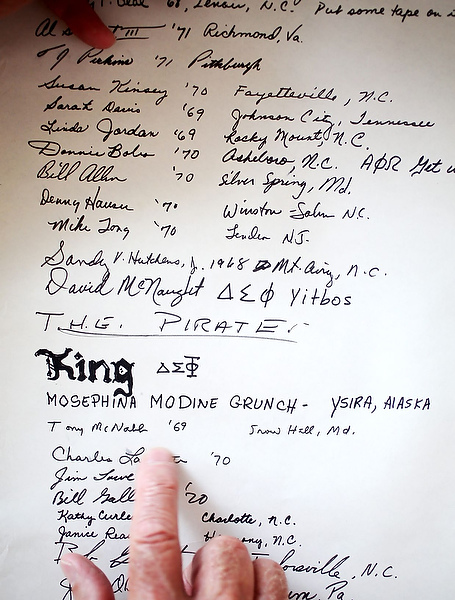 '68, Lenoir, N.C. Put some tape on i
Al III '71 Richmond, Va.
Perkins '71 Pittsburgh
Susan Kinsey '70 Fayetteville, N.C.
Sarah Davis '69 Johnson City, Tennessee
Linda Jordan '69 Rocky Mount, N.C.
Donnie Bobo '70 Asheboro, N.C. ΑΦΩ Get
Bill Allen '70 Silver Spring, Md.
Denny Hauser '70 Winston Salem N.C.
Mike Tong '70 Linden N.J.
Sandy V. Hutchens, Jr. 1968 Mt. Airy, N.C.
David McNaught ΔΣΦ Yitbos
T.H.E. PIRATE
King ΔΣΦ
MOSEPHINA MODINE GRUNCH - YSIRA, ALASKA
Tony McNabb '69 Snow Hall, Md.
Charles '70
Jim
Bill '70
Kathy Charlotte, N.C.
Janice N.C.
Bob N.C.
Pa.